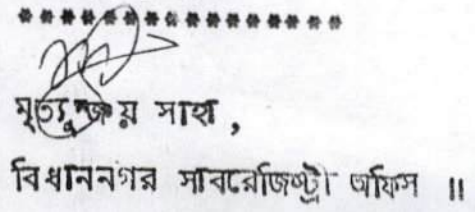 ****************
মৃত্যুঞ্জয় সাহা ,
বিধাননগর সাবরেজিষ্ট্রী অফিস ॥